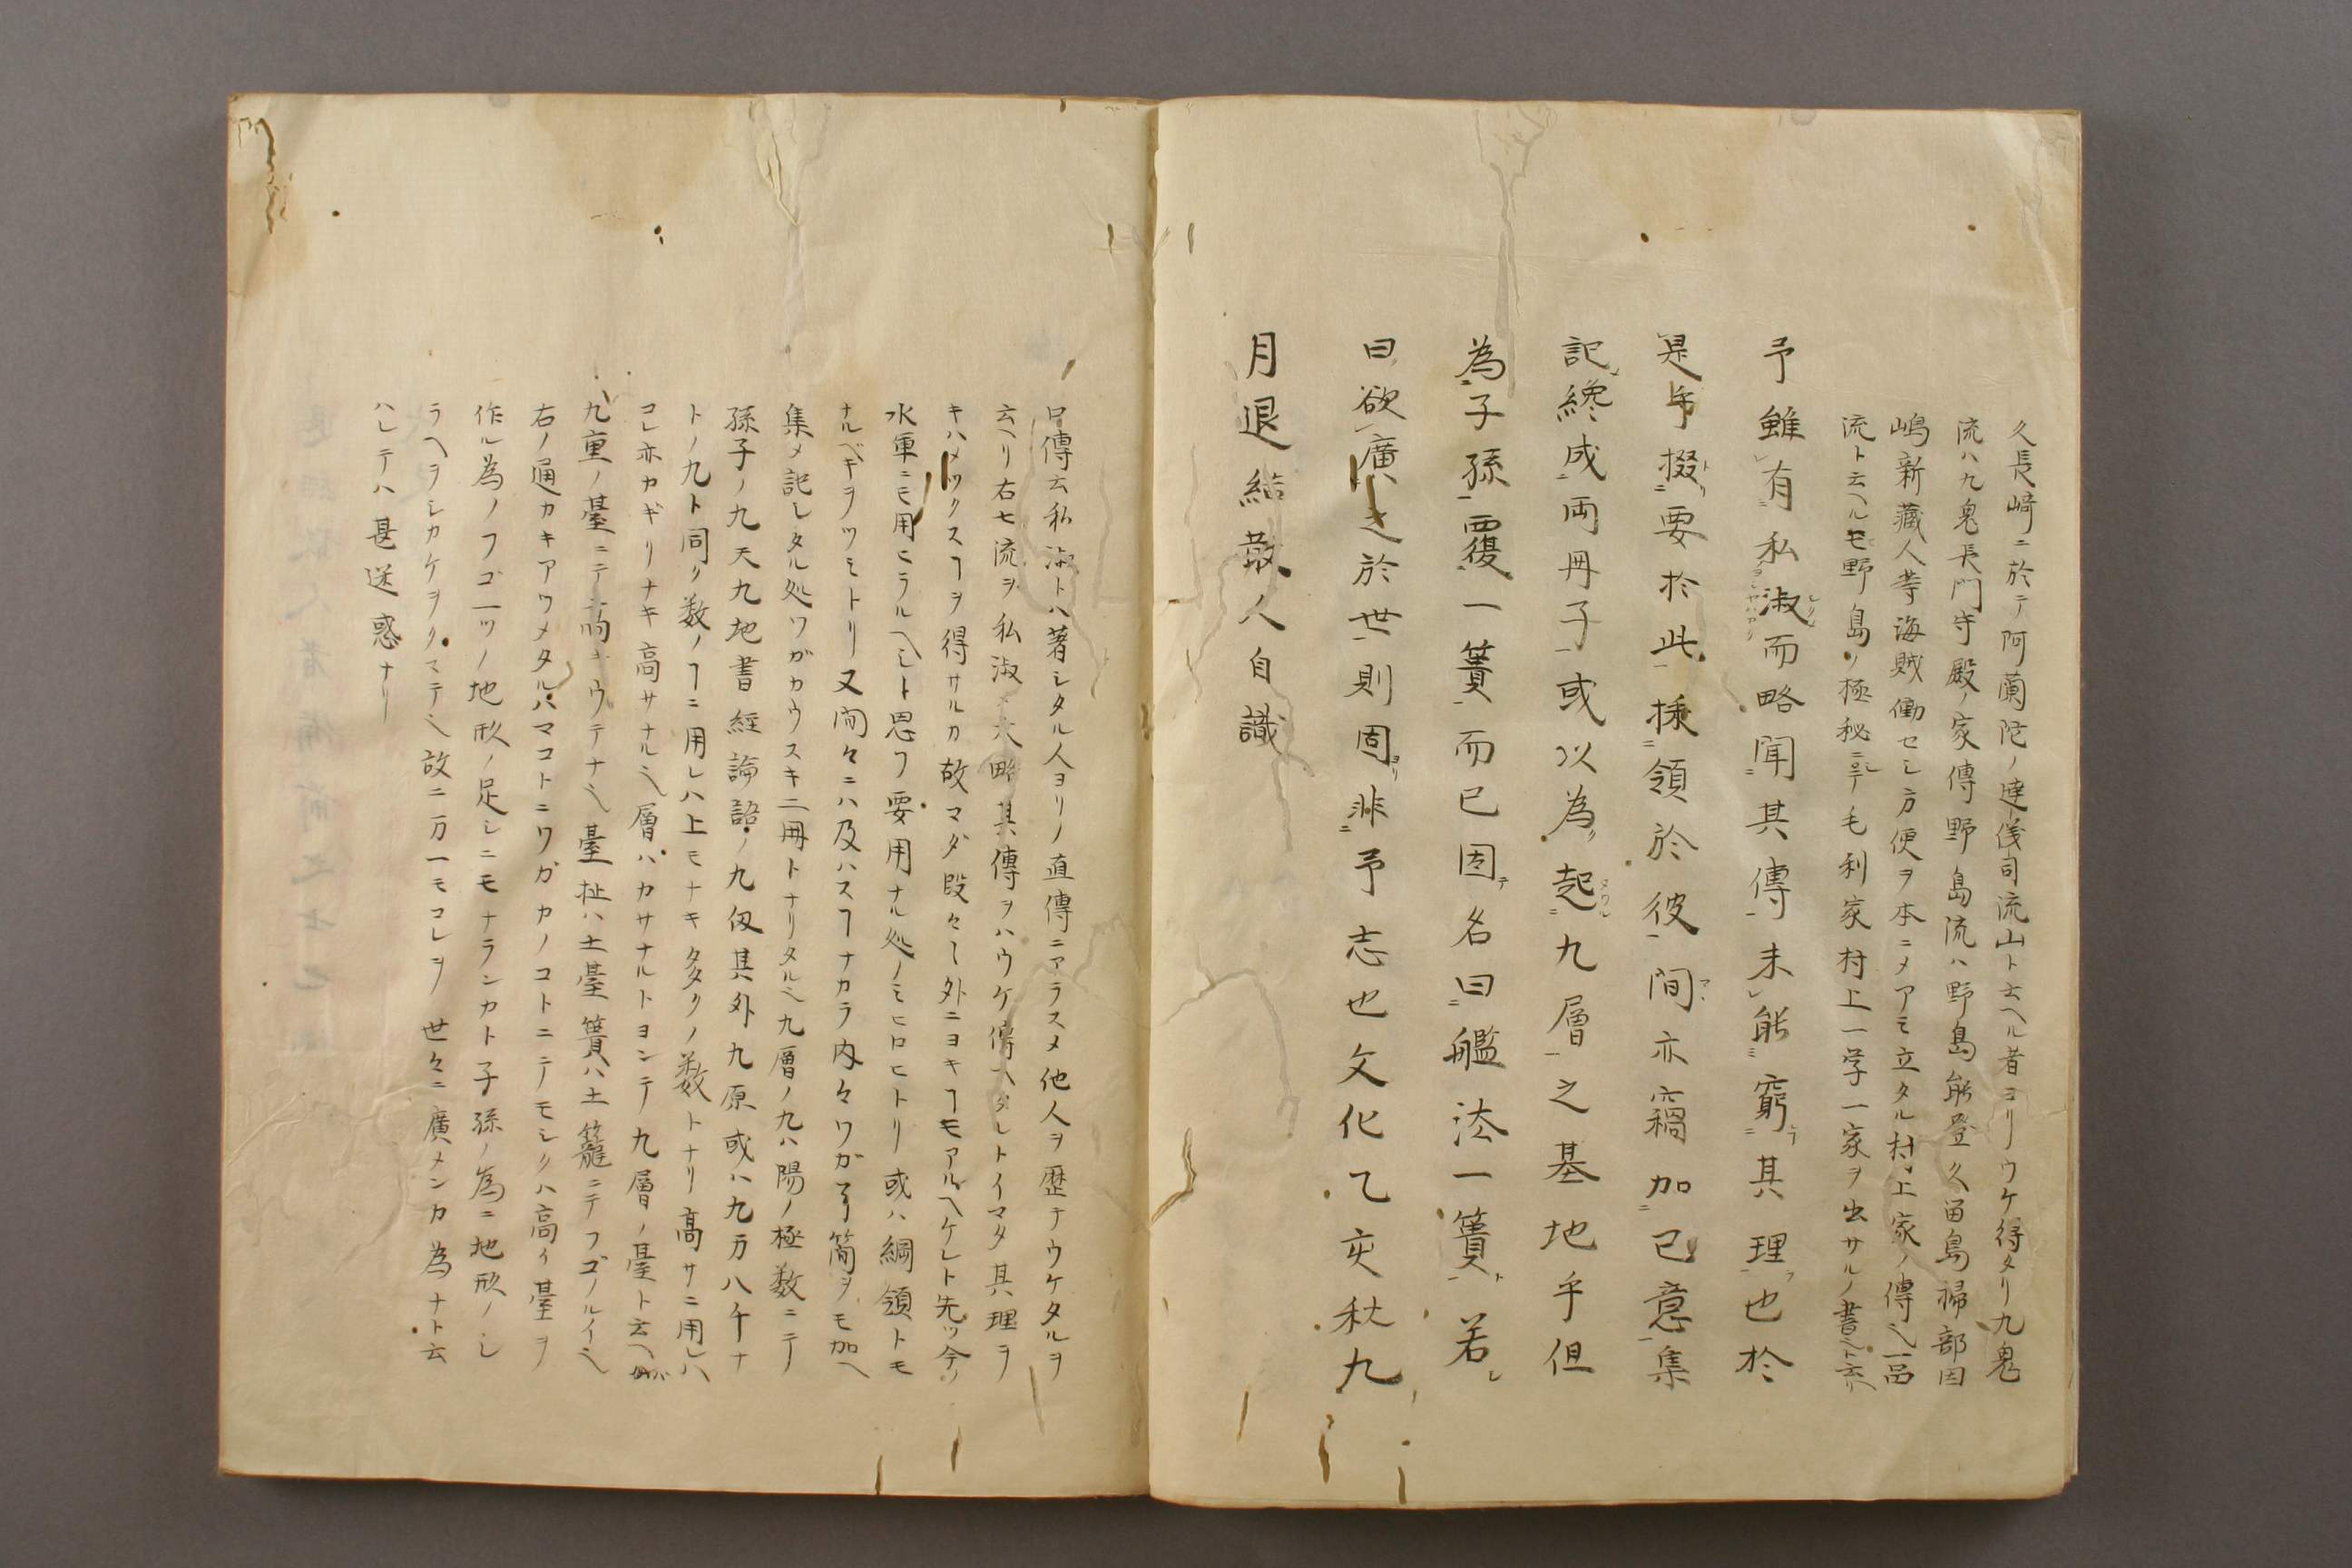 久長崎ニ於テ阿蘭陀ノ達儀司流山ト云ヘル者ヨリウケ得タリ九鬼
流ハ九鬼長門守殿ノ家傳野島流ハ野島能登久留島掃部因
嶋新藏人等海賊働セシ方便ヲ本ニメアミ立タル村上家ノ傳也一品
流ト云ヘルモ野島ノ極秘ニテ毛利家村上一学一家ヲ出サルノ書也ト云リ
予雖有私淑而略聞其傳未能窮其理也於
是乎掇要於此採領於彼間亦竊加已意集
記纔成両冊子或以為起九層之基地乎但
為子孫覆一簣而已因名曰艦法一簣若
曰欲廣之於世則固非予志也文化乙亥秋九
月退結散人自識
口傳云私淑トハ著シタル人ヨリノ直傳ニアラスメ他人ヲ歴テウケタルヲ
云ヘリ右七流ヲ私淑メ大略其傳ヲハウケ傳ヘタレトイマタ其理ヲ
キハメツクスヿヲ得サルカ故マダ段々ト外ニヨキヿモアルヘケレト先ツ今ノ
水軍ニモ用ヒラルヘシト思フ要用ナル処ノミヒロヒトリ或ハ綱領トモ
ナルベキヲツミトリ又間々ニハ及ハスヿナカラ内々ワガ了簡ヲモ加ヘ
集メ記シタル処ワガカウスキ二冊トナリタル也九層ノ九ハ陽ノ極数ニテ
孫子ノ九天九地書經論語ノ九仭其外九原或ハ九万八千ナ
トノ九ト同ク数ノヿニ用レハ上モナキ多クノ数トナリ高サニ用レハ
コレ亦カギリナキ高サナル也層ハカサナルトヨンテ九層ノ臺ト云ヘバ
九重ノ臺ニテ高キウテナ也臺址ハ土臺簣ハ土籠ニテフゴノルイ也
右ノ通カキアツメタルハマコトニワガカノコトニテモシクハ高イ臺ヲ
作ル為ノフゴ一ツノ地形ノ足シニモナランカト子孫ノ為ニ地形ノシ
ラヘヲシカケヲクマテ也故ニ万一モコレヲ世々ニ廣メンカ為ナト云
ハレテハ甚迷惑ナリ